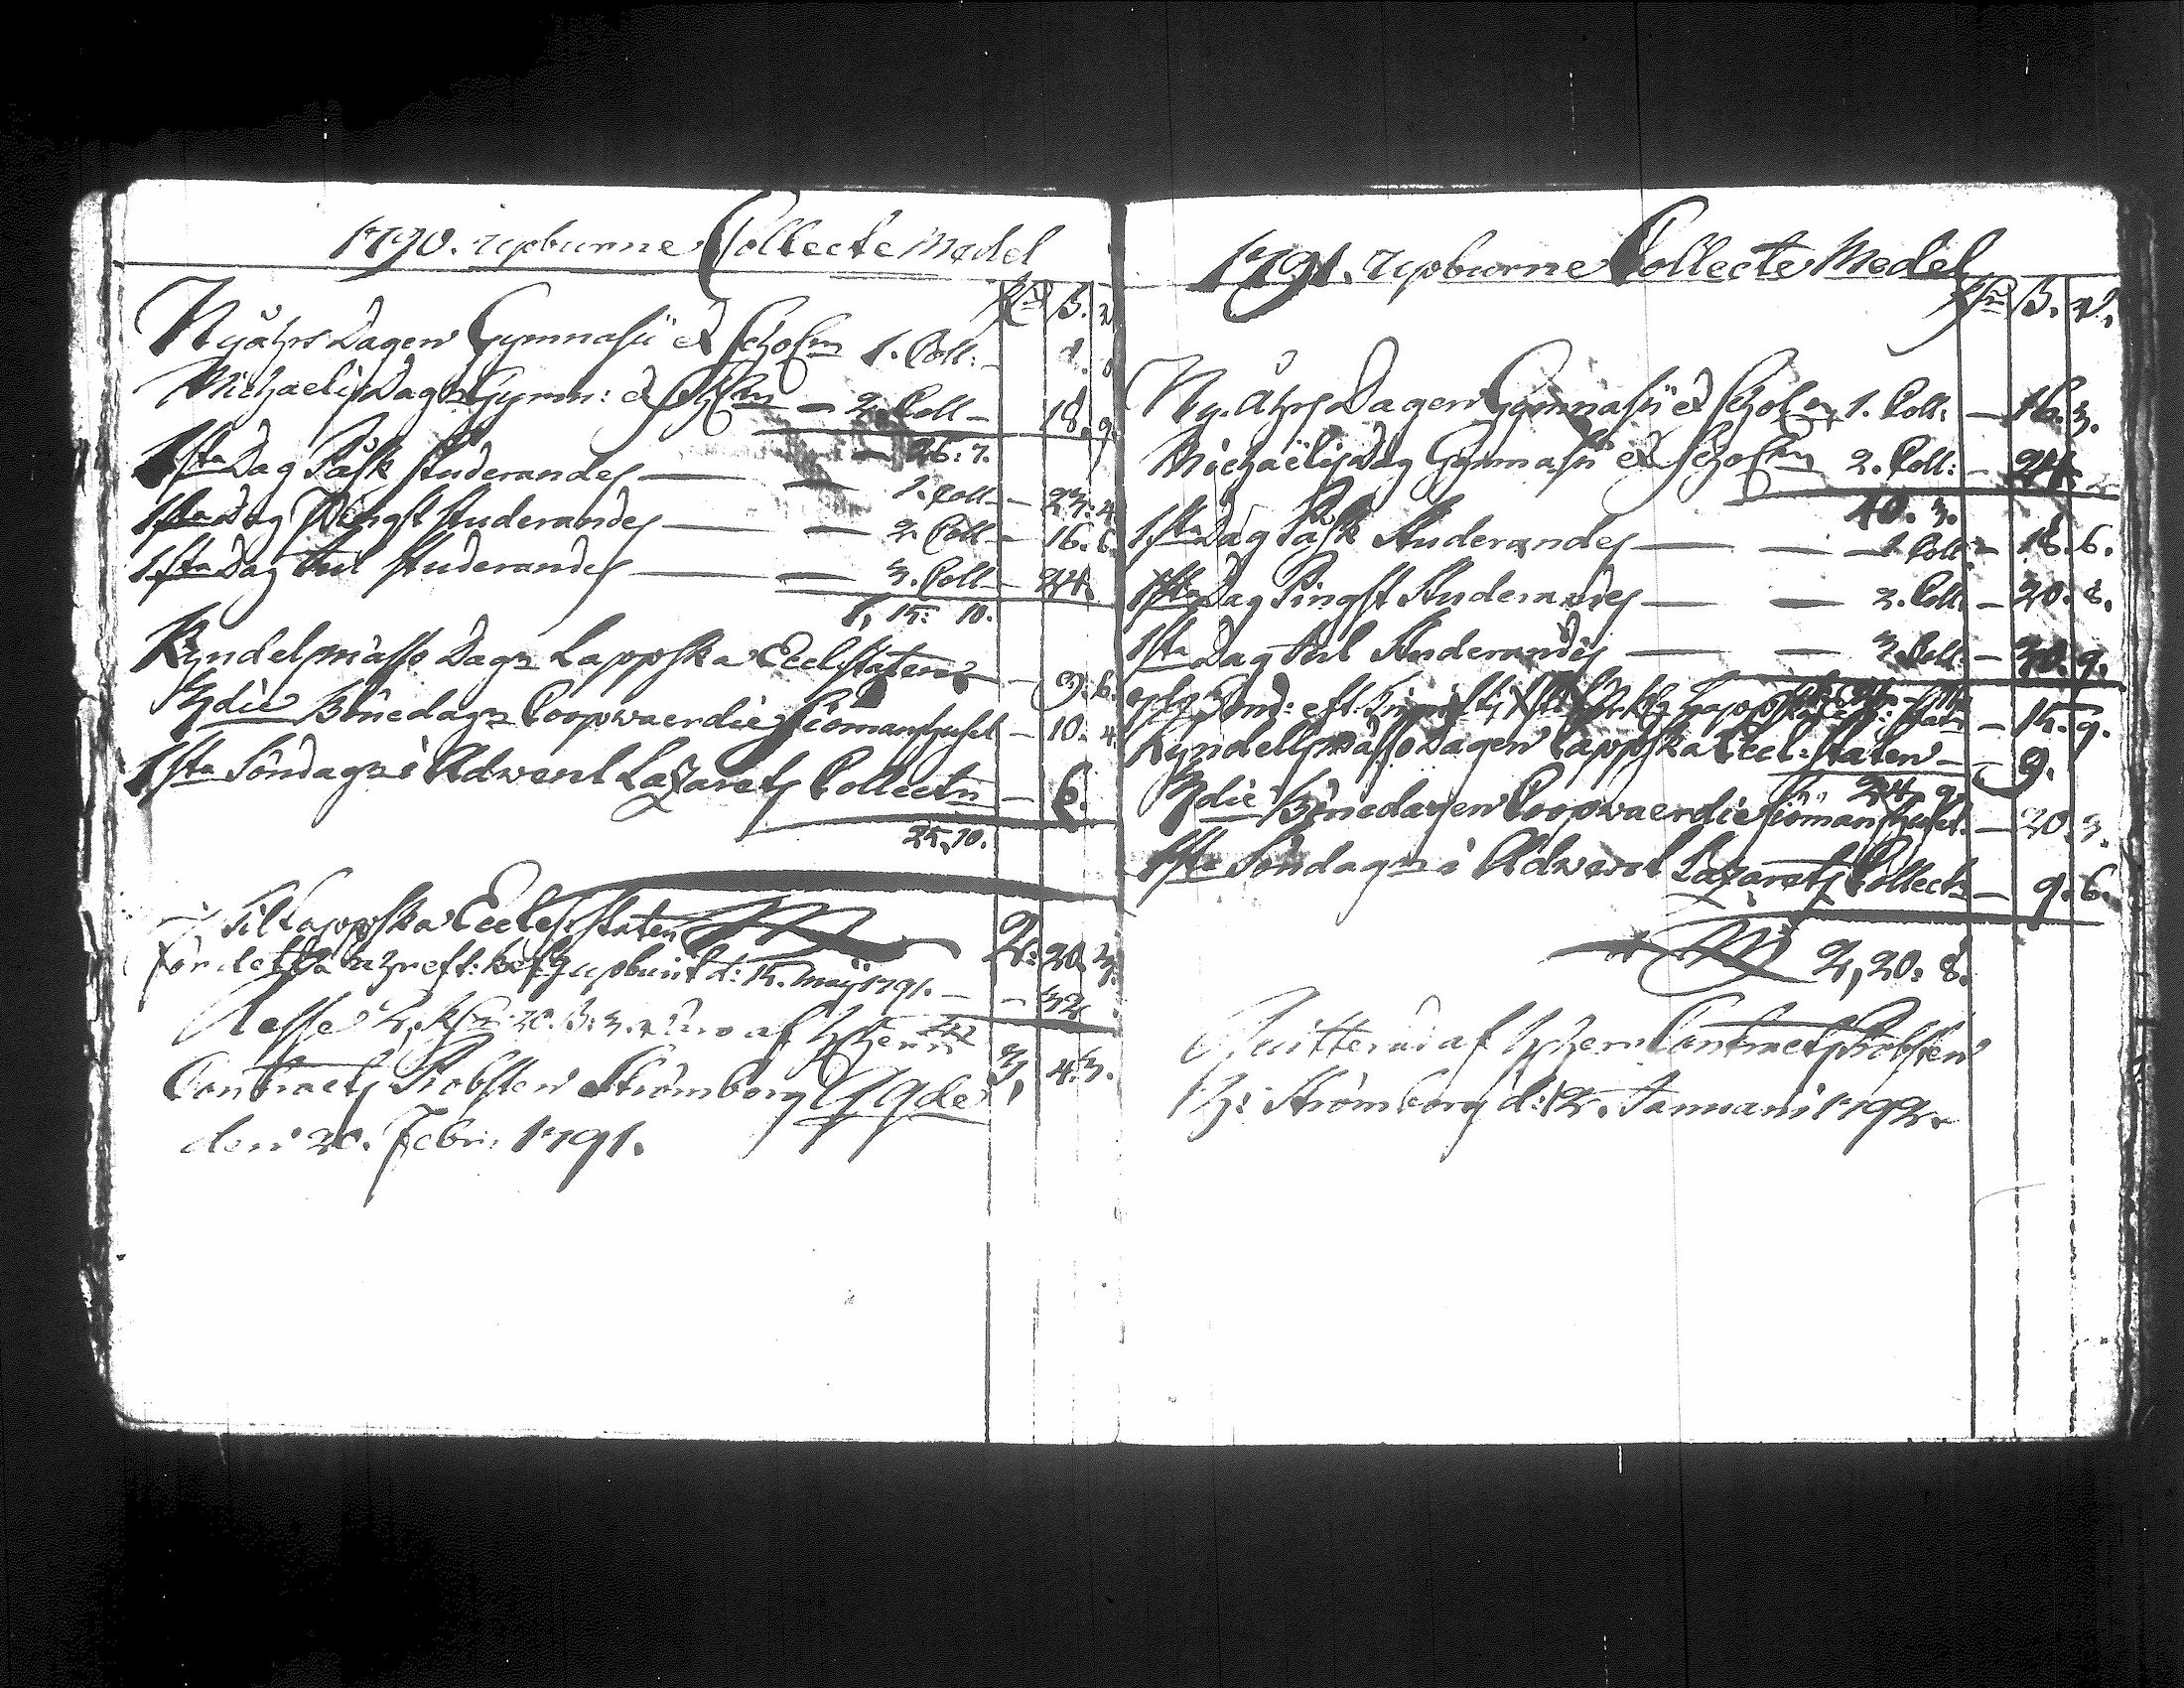 1790. upburne Collecte Medel
ß.
Nyåhrs Dagen Gymnasii et Schol 1. Coll:
Michaelis Dagn Gymn: et — 2. Coll — 18. 9.
26: 7.
1sta Dag Påsk Studerandes — — 1. Coll — 23: 4
1sta Dag Pingst Studerandes — — 2. Coll — 16. 6.
1sta Dag Jul Studerandes — — 3. Coll — 24.
1, 15: 10.
Kyndelsmässo Dagn Lappska Eccl Staten — 9: 6.
3die Bönedagn Coopvaerdie Siömanshuset — 10. 4
1sta Söndagn i Advent Lazarets Collectn — 6.
25, 10.
Til Lappska Eccles Staten 2: 20. 3.
för detta åhr eft: upburit d: 15. Maij 1791. — — 32
20. ß: 3. af
Contracts Probsten Strömborg 3, 4. 3.
den 20. Febr: 1791.
1791. upburne Collecte Medel
ß.
Ny. Åhrs Dagen Gymnasii et Schol 1. Coll: — 16. 3.
Michaëlis Dag Gymnasii et Schol 2. Coll: — 24
40. 3.
1sta Dag Påsk Studerandes — — 1. Coll — 18. 6.
1sta Dag Pingst Studerandes — — 2. Coll — 20. 8.
1sta Dag Jul Studerandes — — 3. Coll: — 30. 9.
Sönd: eft. Lappska — 15. 9.
Kyndellsmässo Dagen Lappska Eccl: Staten — 9.
24, 9.
3die Bönedagen Coopvaerdie Siömanshuset. — 20. 3.
1sta Söndagn i Advent Lazarets Collectn — 9. 6.
2, 20. 8.
Quitterat af Contracts Probsten
H: Strömborg d: 12. Januarii 1792.